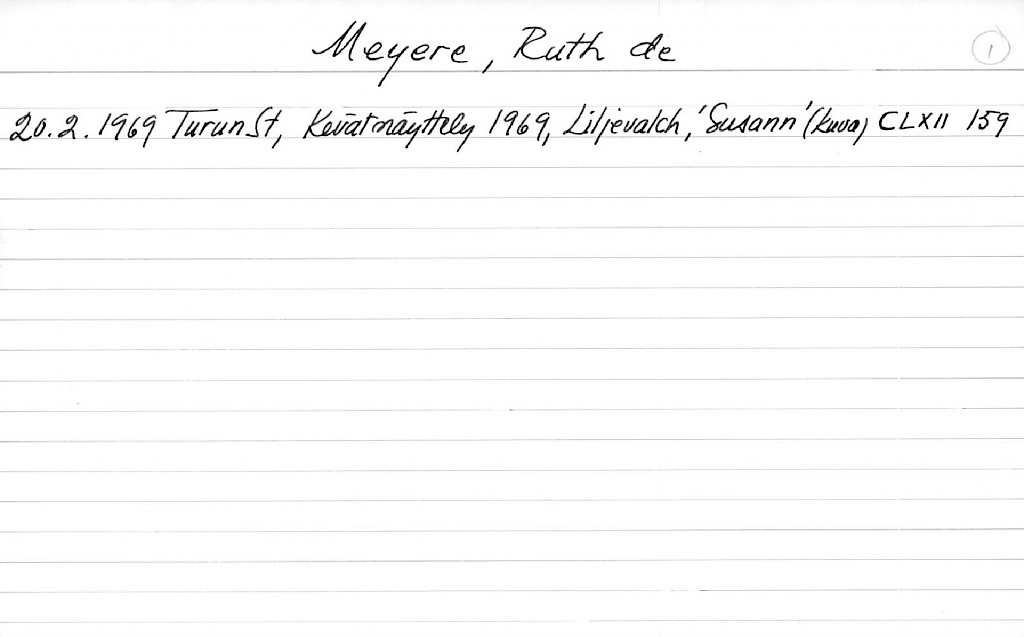 Meyere, Ruth de
1
20.2.1969 Turun St, Kevätnäyttely 1969, Liljevalch, 'Susann' (kuva) CLXII 159